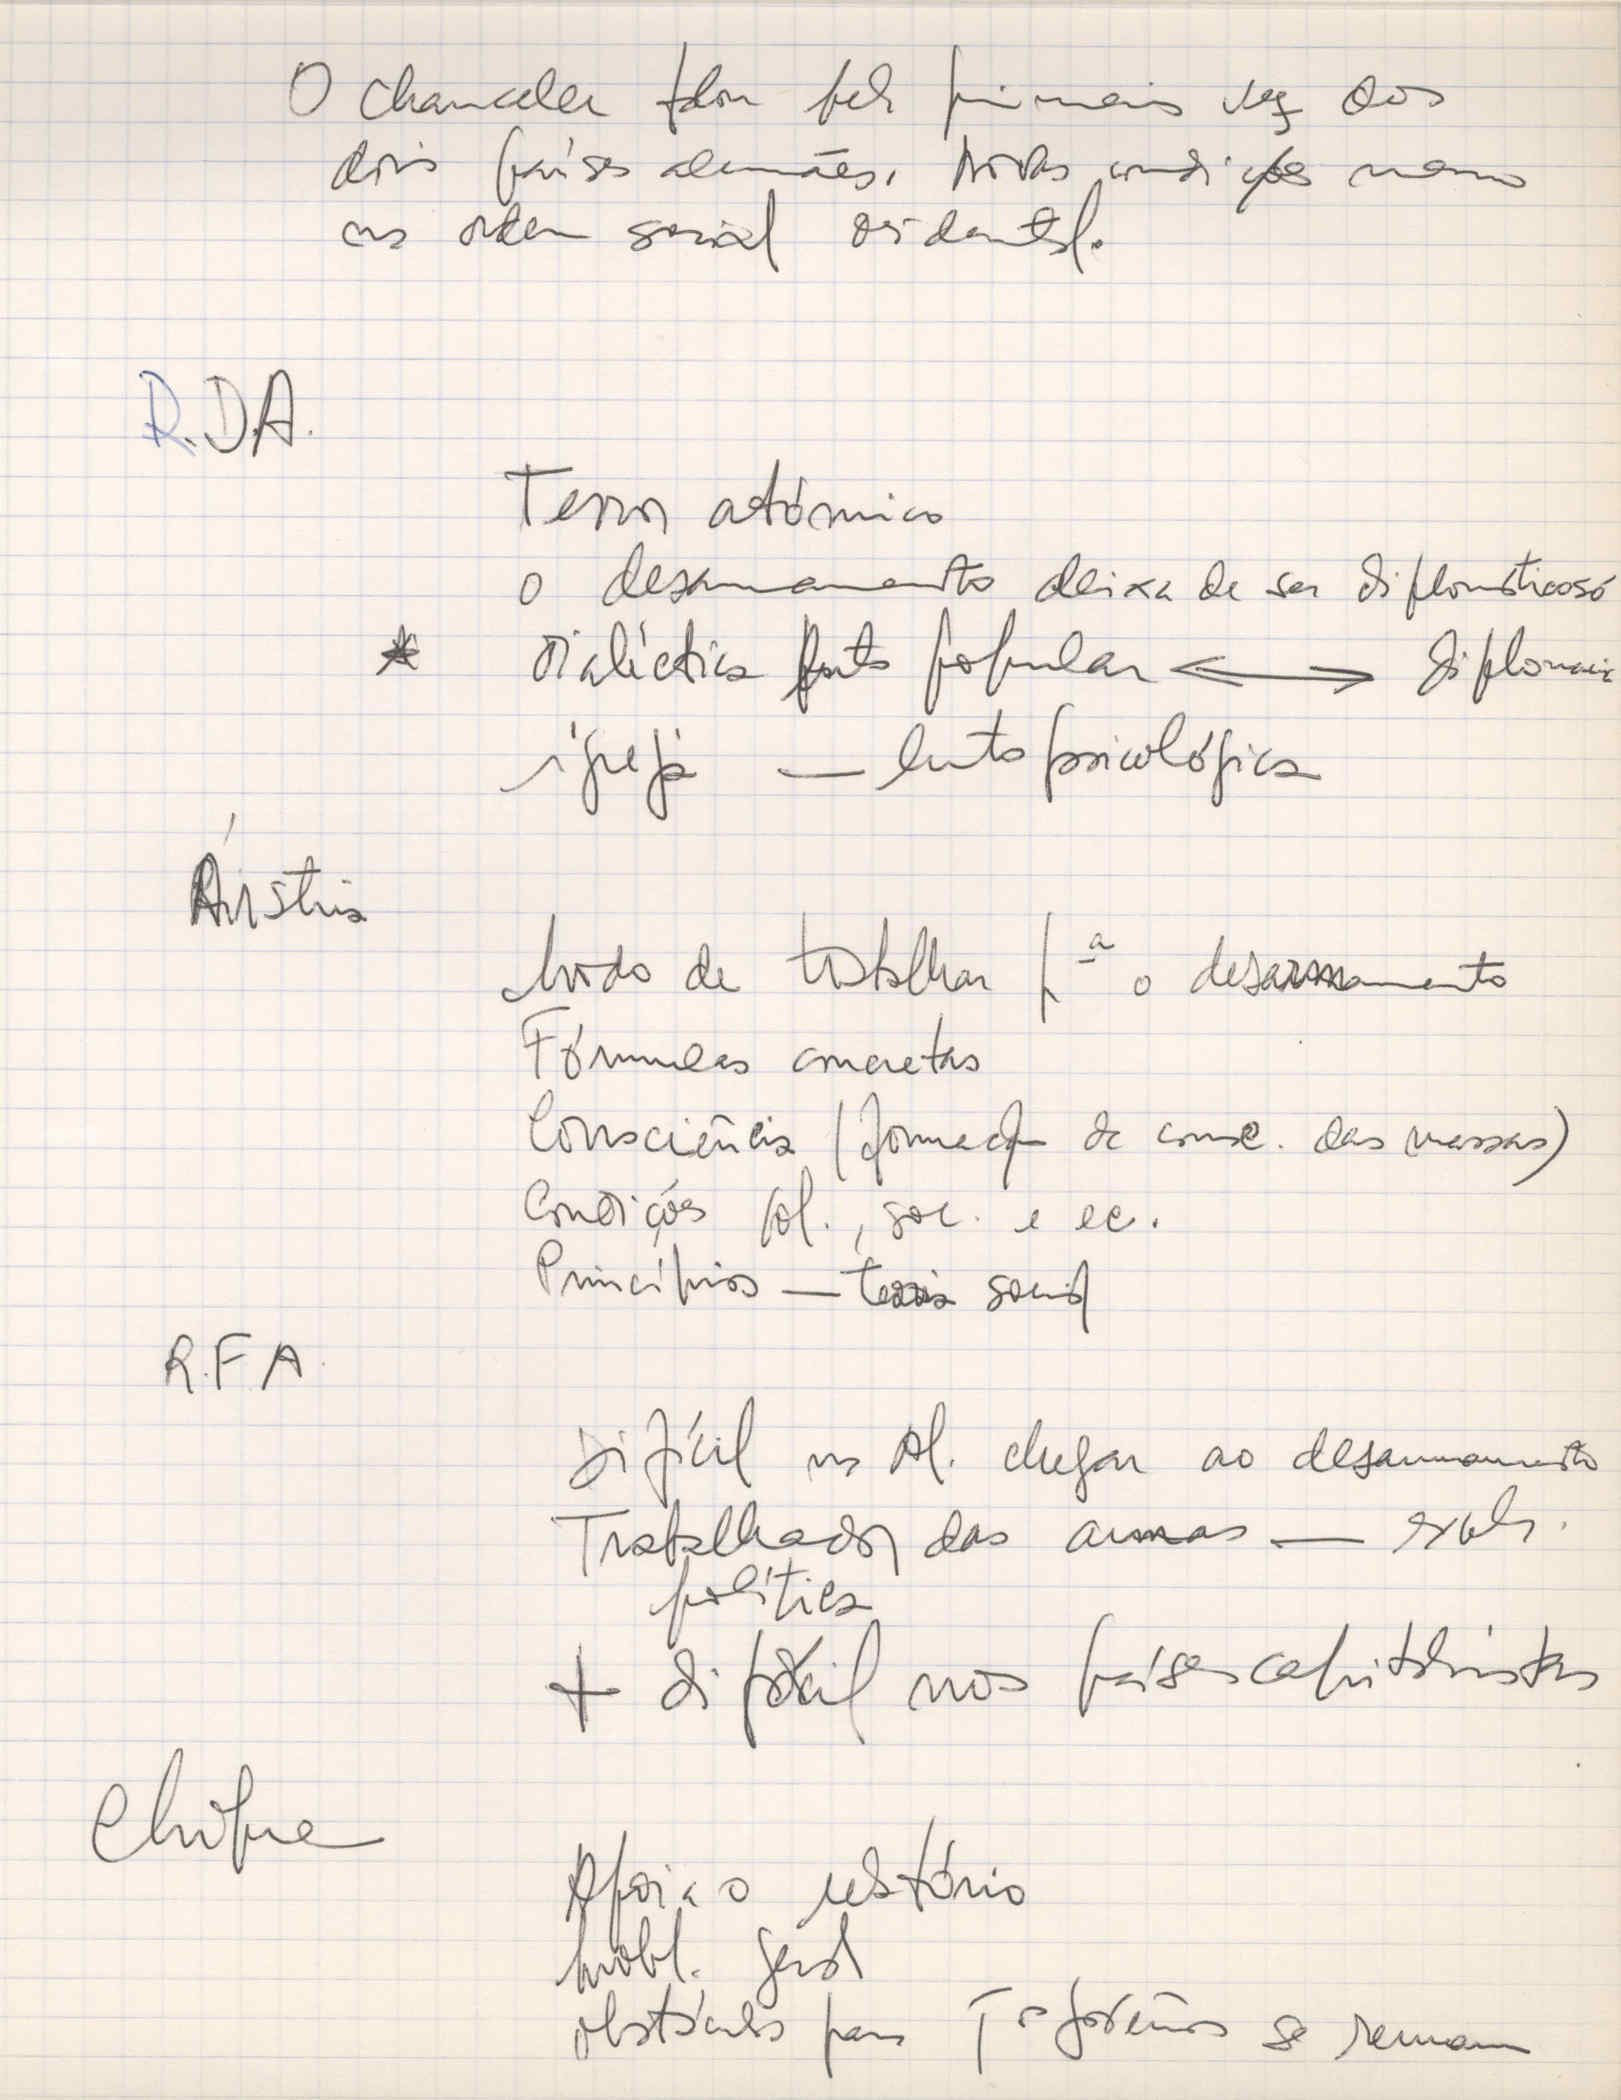 O chanceler falou pela primeira vez dos
dois países alemães. Novas condições mesmo
na ordem social ocidental.
R.D.A.
Terror atómico
o desarmamento deixa de ser diplomático só
* Dialéctica luta popular ⟵⟶ diplomacia
igreja — luta psicológica
Áustria
Modo de trabalhar pª o desarmamento
Fórmulas concretas
Consciência (formação de consc. das massas)
Condições pol., soc. e ec.
Princípios — social
R.F.A.
Difícil na Al. chegar ao desarmamento
Trabalhador das armas —
política
+ difícil nos países capitalistas
Chipre
Apoia o relatório
Mobl. geral
obstáculos para se